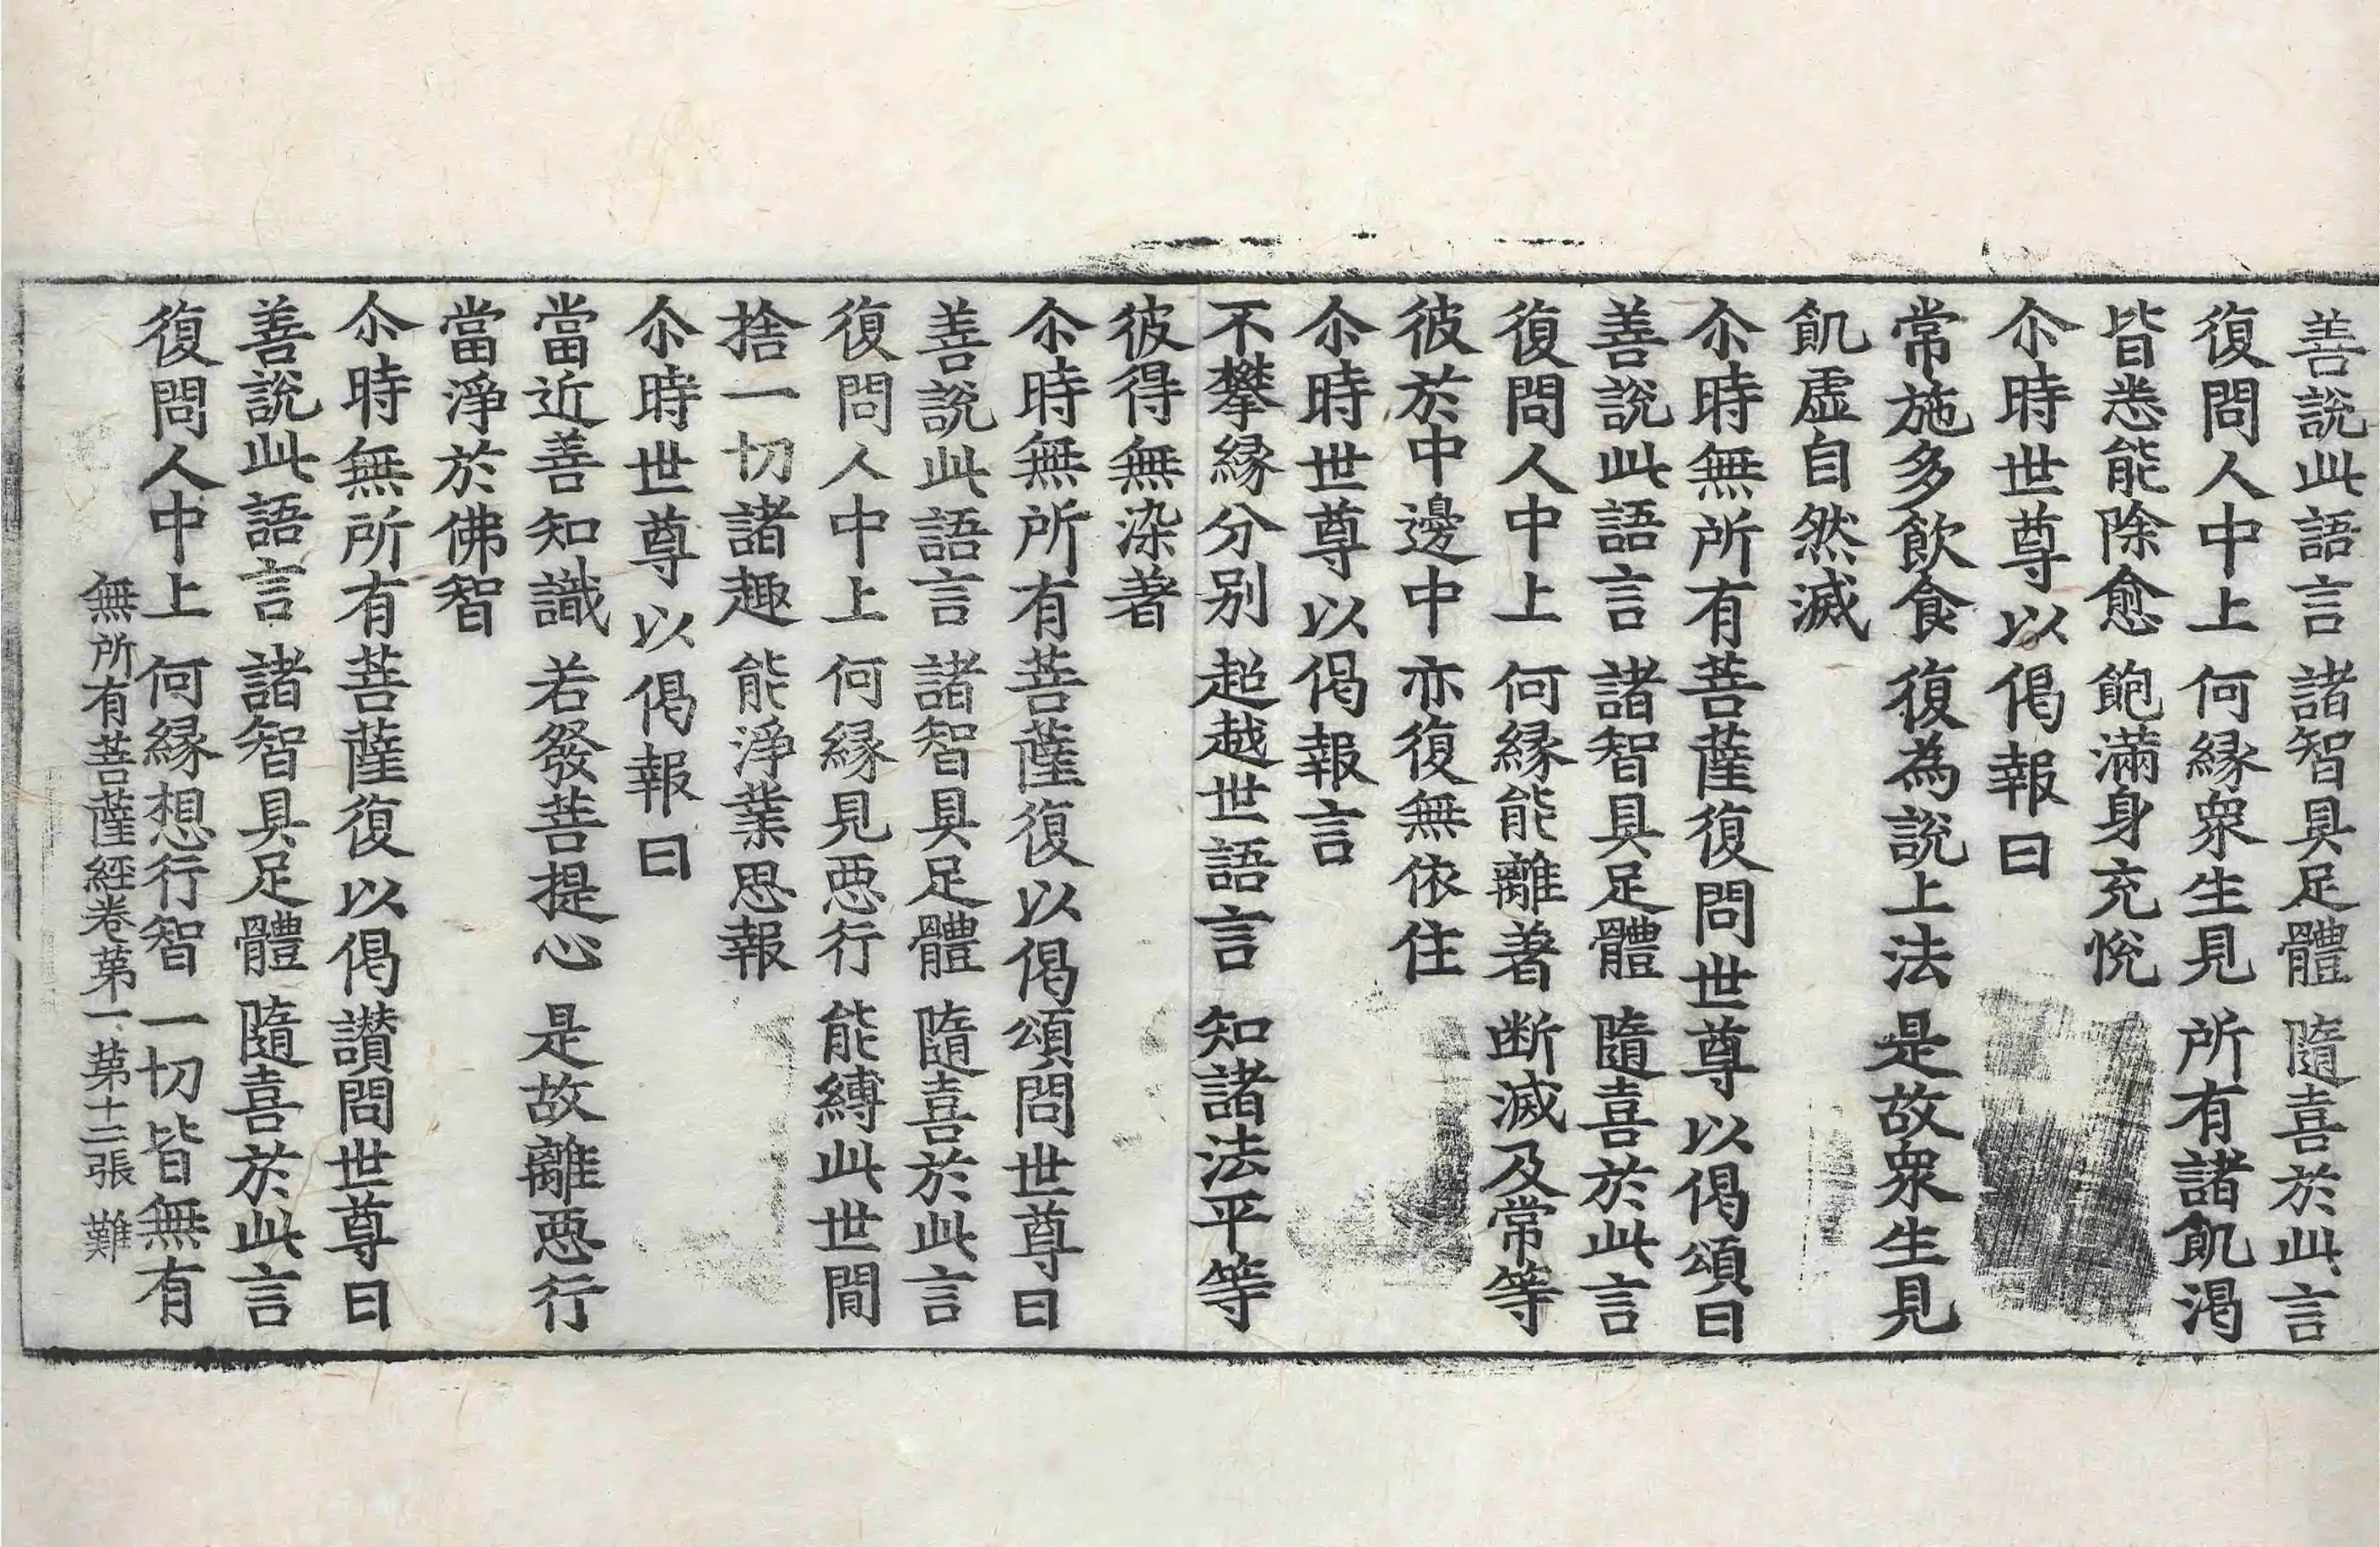 善說此語言 諸智具足體 隨喜於此言
復問人中上 何緣衆生見 所有諸飢渴
皆悉能除愈 飽滿身充悅
尒時世尊以偈報曰
常施多飲食 復為說上法 是故衆生見
飢虛自然滅
尒時無所有菩薩復問世尊以偈頌曰
善說此語言 諸智具足體 隨喜於此言
復問人中上 何緣能離著 断滅及常等
彼於中邊中 亦復無依住
尒時世尊以偈報言
不攀緣分別 超越世語言 知諸法平等
彼得無染著
尒時無所有菩薩復以偈頌問世尊曰
善說此語言 諸智具足體 隨喜於此言
復問人中上 何緣見惡行 能縛此世間
捨一切諸趣 能淨業思報
尒時世尊以偈報曰
當近善知識 若發菩提心 是故離惡行
當淨於佛智
尒時無所有菩薩復以偈讃問世尊曰
善說此語言 諸智具足體 隨喜於此言
復問人中上 何緣想行智 一切皆無有
無所有菩薩經卷第一 第十二張 難